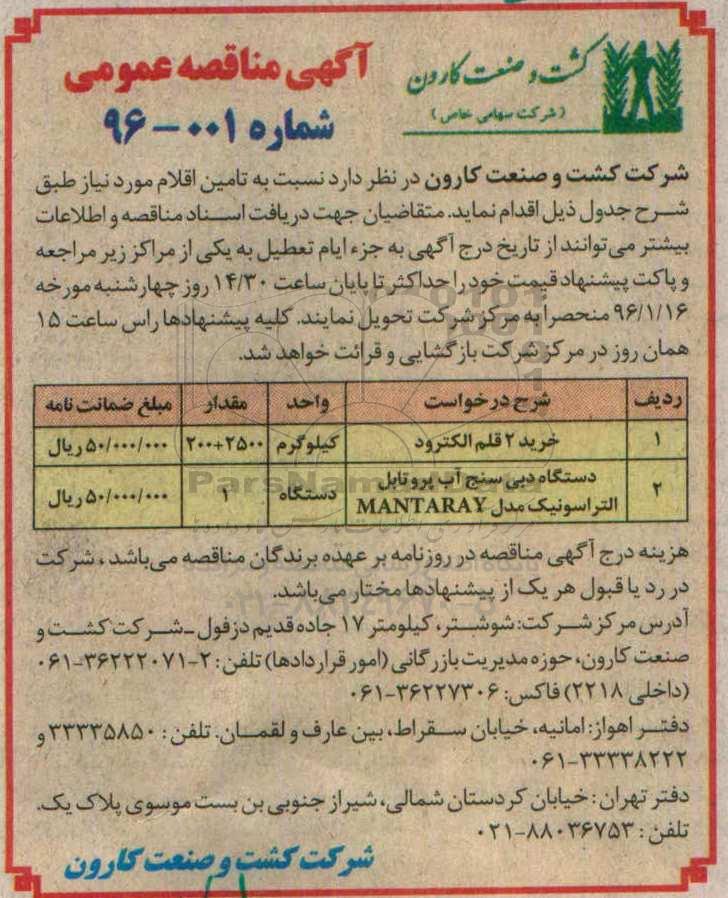 کشت و صنعت کارون
(شرکت سهامی خاص)
آگهی مناقصه عمومی
شماره ۰۰۱-۹۶
شرکت کشت و صنعت کارون در نظر دارد نسبت به تامین اقلام مورد نیاز طبق
شرح جدول ذیل اقدام نماید. متقاضیان جهت دریافت اسناد مناقصه و اطلاعات
بیشتر می‌توانند از تاریخ درج آگهی به جزء ایام تعطیل به یکی از مراکز زیر مراجعه
و پاکت پیشنهاد قیمت خود را حداکثر تا پایان ساعت ۱۴/۳۰ روز چهارشنبه مورخه
۹۶/۱/۱۶ منحصراً به مرکز شرکت تحویل نمایند. کلیه پیشنهادها راس ساعت ۱۵
همان روز در مرکز شرکت بازگشایی و قرائت خواهد شد.
ردیف شرح درخواست واحد مقدار مبلغ ضمانت نامه
۱ خرید ۲ قلم الکترود کیلوگرم ۲۵۰۰+۲۰۰ ۵۰/۰۰۰/۰۰۰ ریال
۲ دستگاه دبی سنج آب پروتابل
التراسونیک مدل MANTARAY دستگاه ۱ ۵۰/۰۰۰/۰۰۰ ریال
ParsNamadData
هزینه درج آگهی مناقصه در روزنامه بر عهده برندگان مناقصه می‌باشد، شرکت
در رد یا قبول هر یک از پیشنهادها مختار می‌باشد.
آدرس مرکز شرکت: شوشتر، کیلومتر ۱۷ جاده قدیم دزفول - شرکت کشت و
صنعت کارون، حوزه مدیریت بازرگانی (امور قراردادها) تلفن: ۲-۳۶۲۲۲۰۷۱-۰۶۱
(داخلی ۲۲۱۸) فاکس: ۳۶۲۲۷۳۰۶-۰۶۱
دفتر اهواز: امانیه، خیابان سقراط، بین عارف و لقمان. تلفن: ۳۳۳۳۵۸۵۰ و
۳۳۳۳۸۲۲۲-۰۶۱
دفتر تهران: خیابان کردستان شمالی، شیراز جنوبی بن بست موسوی پلاک یک.
تلفن: ۸۸۰۳۶۷۵۳-۰۲۱
شرکت کشت و صنعت کارون